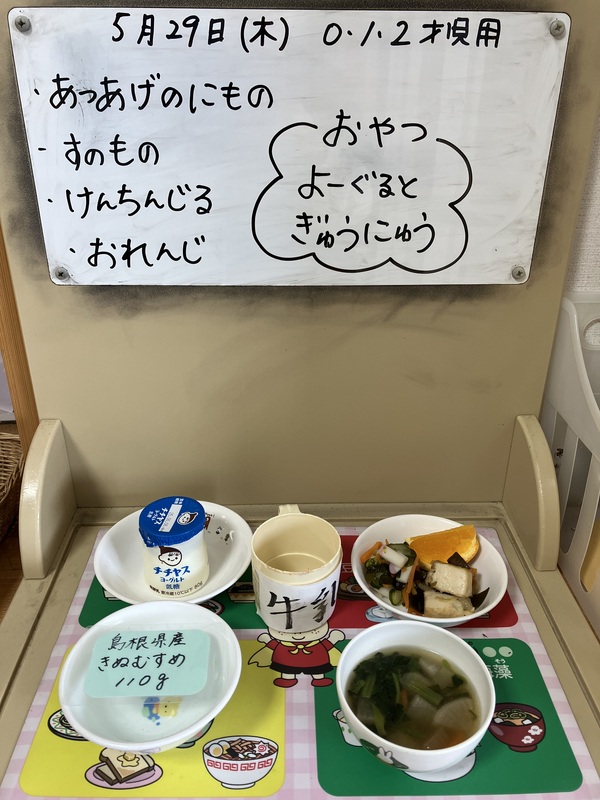 5月29日(木) 0.1.2才児用
・あつあげのにもの
・すのもの
・けんちんじる
・おれんじ
おやつ
よーぐると
ぎゅうにゅう
チチヤス
ヨーグルト
低糖
牛乳
島根県産
きぬむすめ
110g
藻